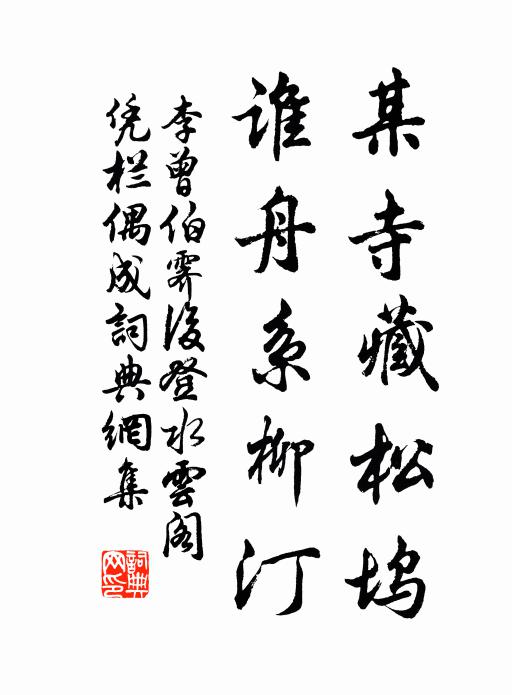 某寺藏松坞
谁舟系柳汀
李曾伯霁後登水雲阁
凭栏偶成詞典網集
詞典網印